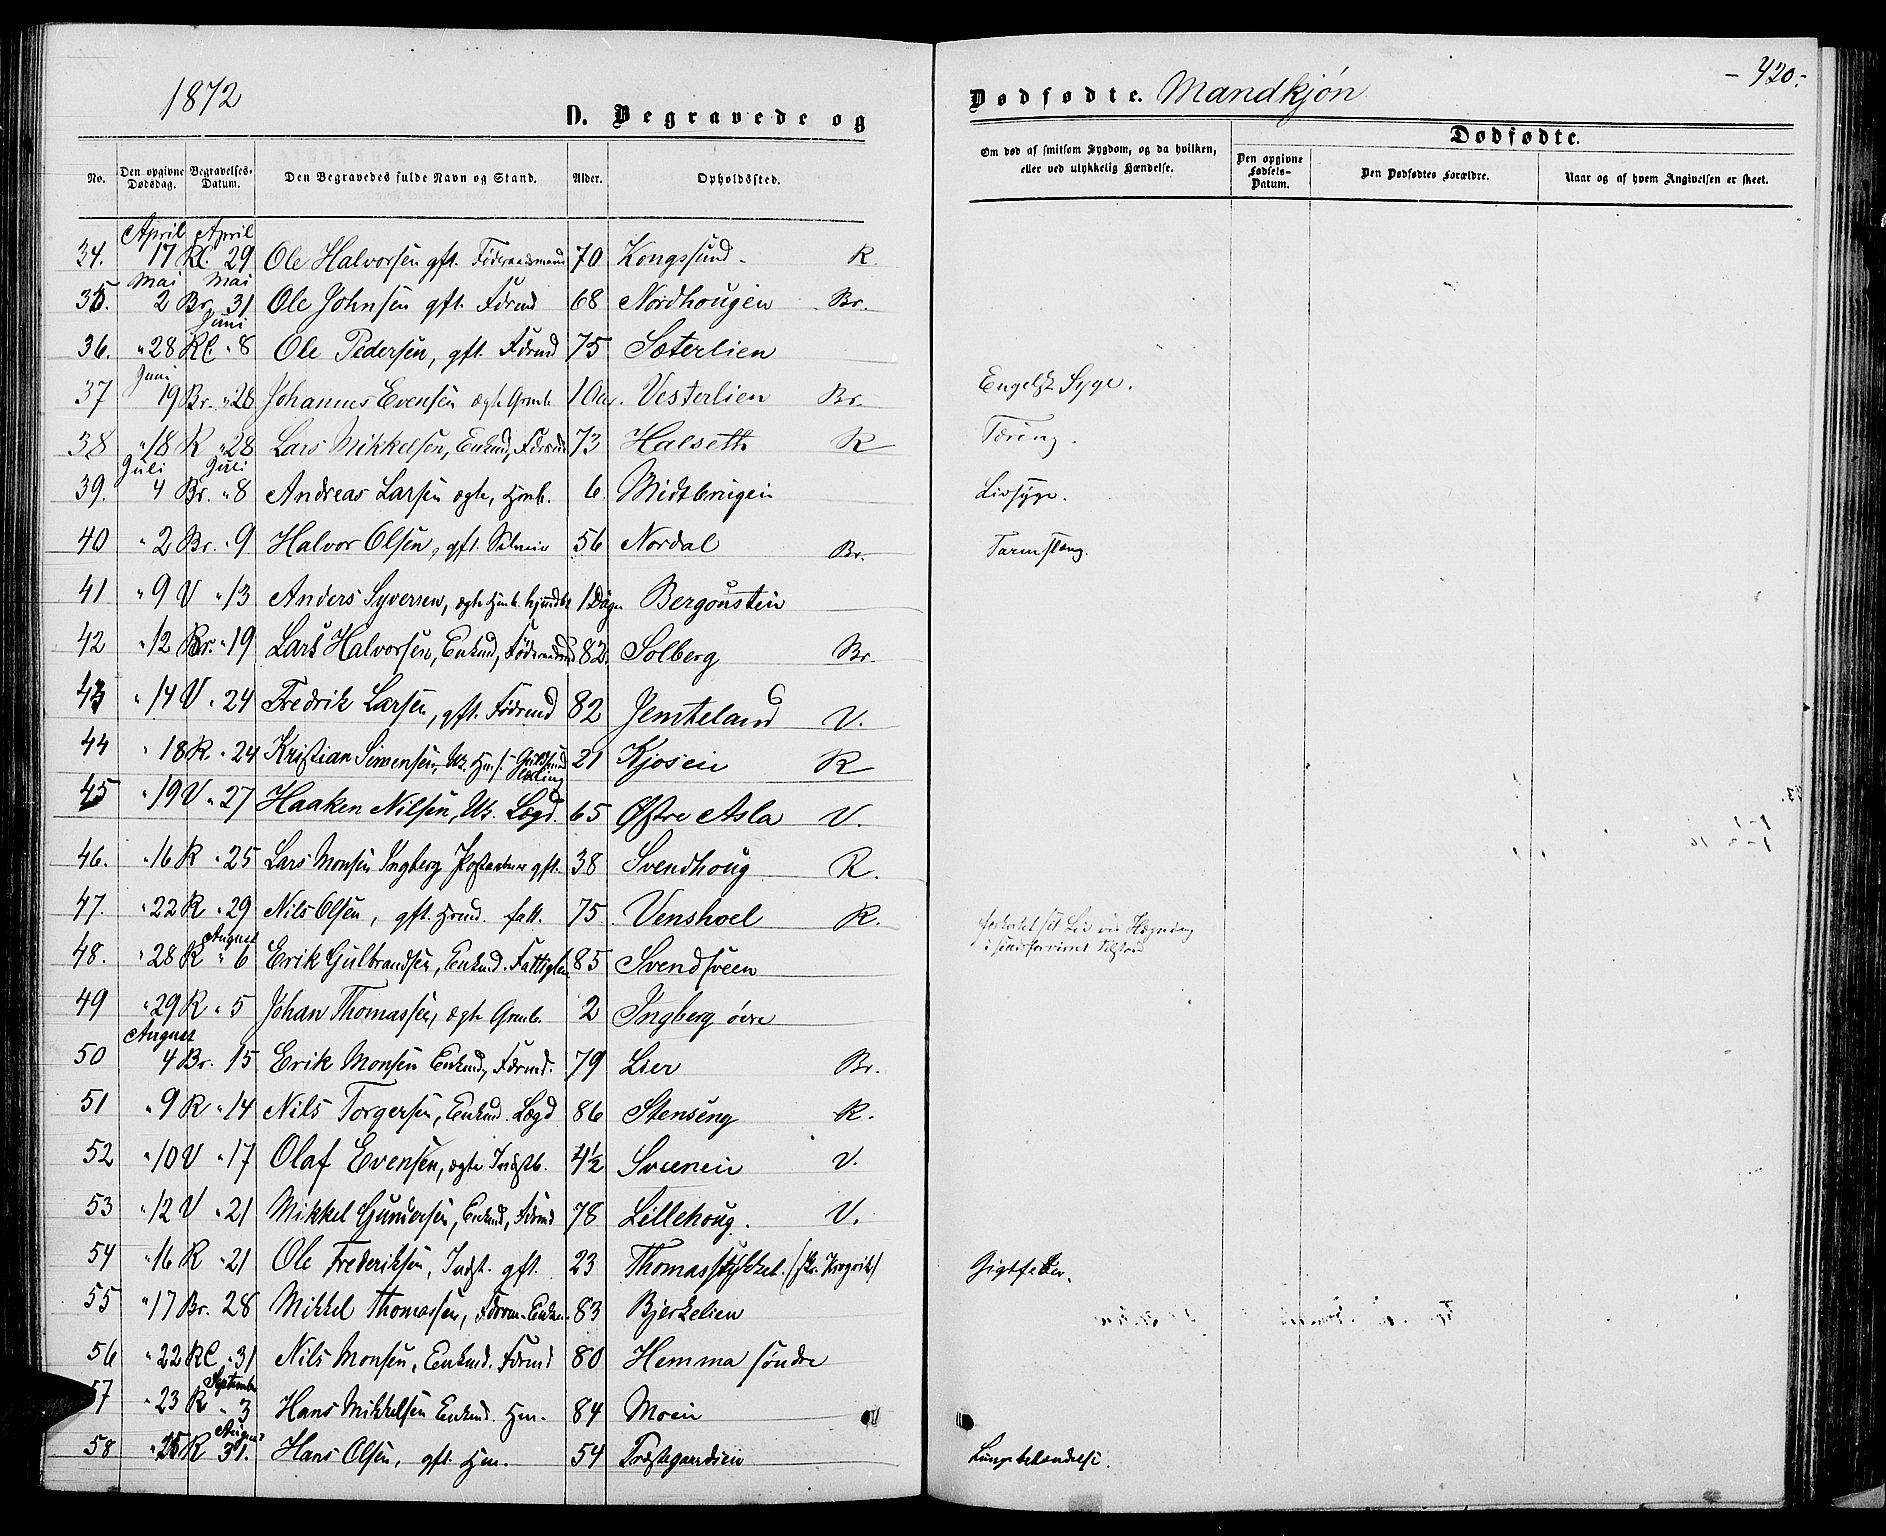 1872
D. Begravede og
Dødfødte. Mandkjøn
- 420 -
No.
Den opgivne Dødsdag.
Begravelses-Datum.
Den Begravedes fulde Navn og Stand.
Alder.
Opholdssted.
Om død af smitsom Sygdom, og da hvilken, eller ved ulykkelig Hændelse.
Dødfødte.
Den opgivne Fødsels-Datum.
Den Dødfødtes Forældre.
Naar og af hvem Angivelsen er skeet.
April April
34. 17 Kl. 29 Ole Halvorsen gft. Føderaadsmand 70 Kongssund - R
Mai Mai
35 2 Br. 31 Ole Johnsen gft. Førmd 68 Nordhougen Br.
Juni
36. " 28 Kl " 8 Ole Pedersen, gft. Førmd 75 Sæterlien
Juni
37 19 Br. " 28 Johannes Evensen ægte Grmb. 10 Vesterlien Br. Engelsk Syge.
38 " 18 R " 28 Lars Mikkelsen, Enkmd, Førmd 73 Halseth R Tæring.
Juli Juli
39. 4 Br. " 8 Andreas Larsen ægte, Hmb. 6 Midtbrugen Livsyge.
40 " 2 Br. " 9 Halvor Olsen, gft. Selveier 56 Nordal Br. Tarmslæng.
41 " 9 V " 13 Anders Syversen, ægte Hmb. hjmdbt 1 Døgn Bergoustein
42 " 12 Br. " 19 Lars Halvorsen, Enkmd, Føderaadsmd 82. Solberg Br.
43 " 14 V " 24 Fredrik Larsen, gft. Fødrmd 82 Jemteland V.
44 " 18 R. " 24 Kristian Simensen, Uk. Hms. 21 Kjosen R
45 " 19 V " 27 Haaken Nilsen, Uk. Lægd. 65 Østre Asla V.
46. " 16 R " 25 Lars Monsen Ingberg gft. 38 Svendhoug R.
47. " 22 R " 29 Nils Olsen, gft. Hmd. fatt. 75 Venshoel R. forkortet sit Liv ved Hægning
i sindsforvirret Tilstand
August
48. " 28 R " 6 Erik Gulbrandsen, Enkmd. Fattiglem 85 Svendsveen
49 " 29 R " 5 Johan Thomassen, ægte Grmb. 2 Ingberg øvre
August
50 4 Br. 15 Erik Monsen Enkmd, Førmd. 79 Lier Br.
51 " 9 R " 14 Nils Torgersen, Enkmd. Lægd 86 Stenseng R.
52 " 10 V " 17 Olaf Evensen, ægte Indstb. 4½ Sveeneie V.
53 " 12 V " 21 Mikkel Gundersen, Enkmd, Førmd 78 Lillehoug. V.
54 " 16 R " 21 Ole Frederiksen, Indst. gft. 23 Thomasstykket. Gigtfeber.
55 " 17 Br. 28 Mikkel Thomassen, 83 Bjerkelien
56 " 22 Kl " 31 Nils Monsen, Enkmd. Førmd 80 Hemma søndre
September
57 " 23 R " 3 Hans Mikkelsen Enkmd. Hm. 84 Moen
August
58. " 25 R 31. Hans Olsen, gft. Hm. 54 Præstgaardseie Lungebetændelse.